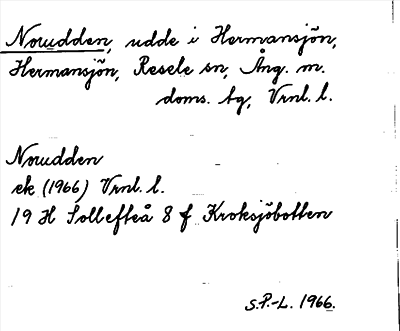 Norudden, udde i Hermansjön,
Hermansjön, Resele sn, Ång. m.
doms. tg, Vrnl. l.
Norudden
ek (1966) Vrnl. l.
19 H Sollefteå 8 f Kroksjöbotten
S.P.-L. 1966.